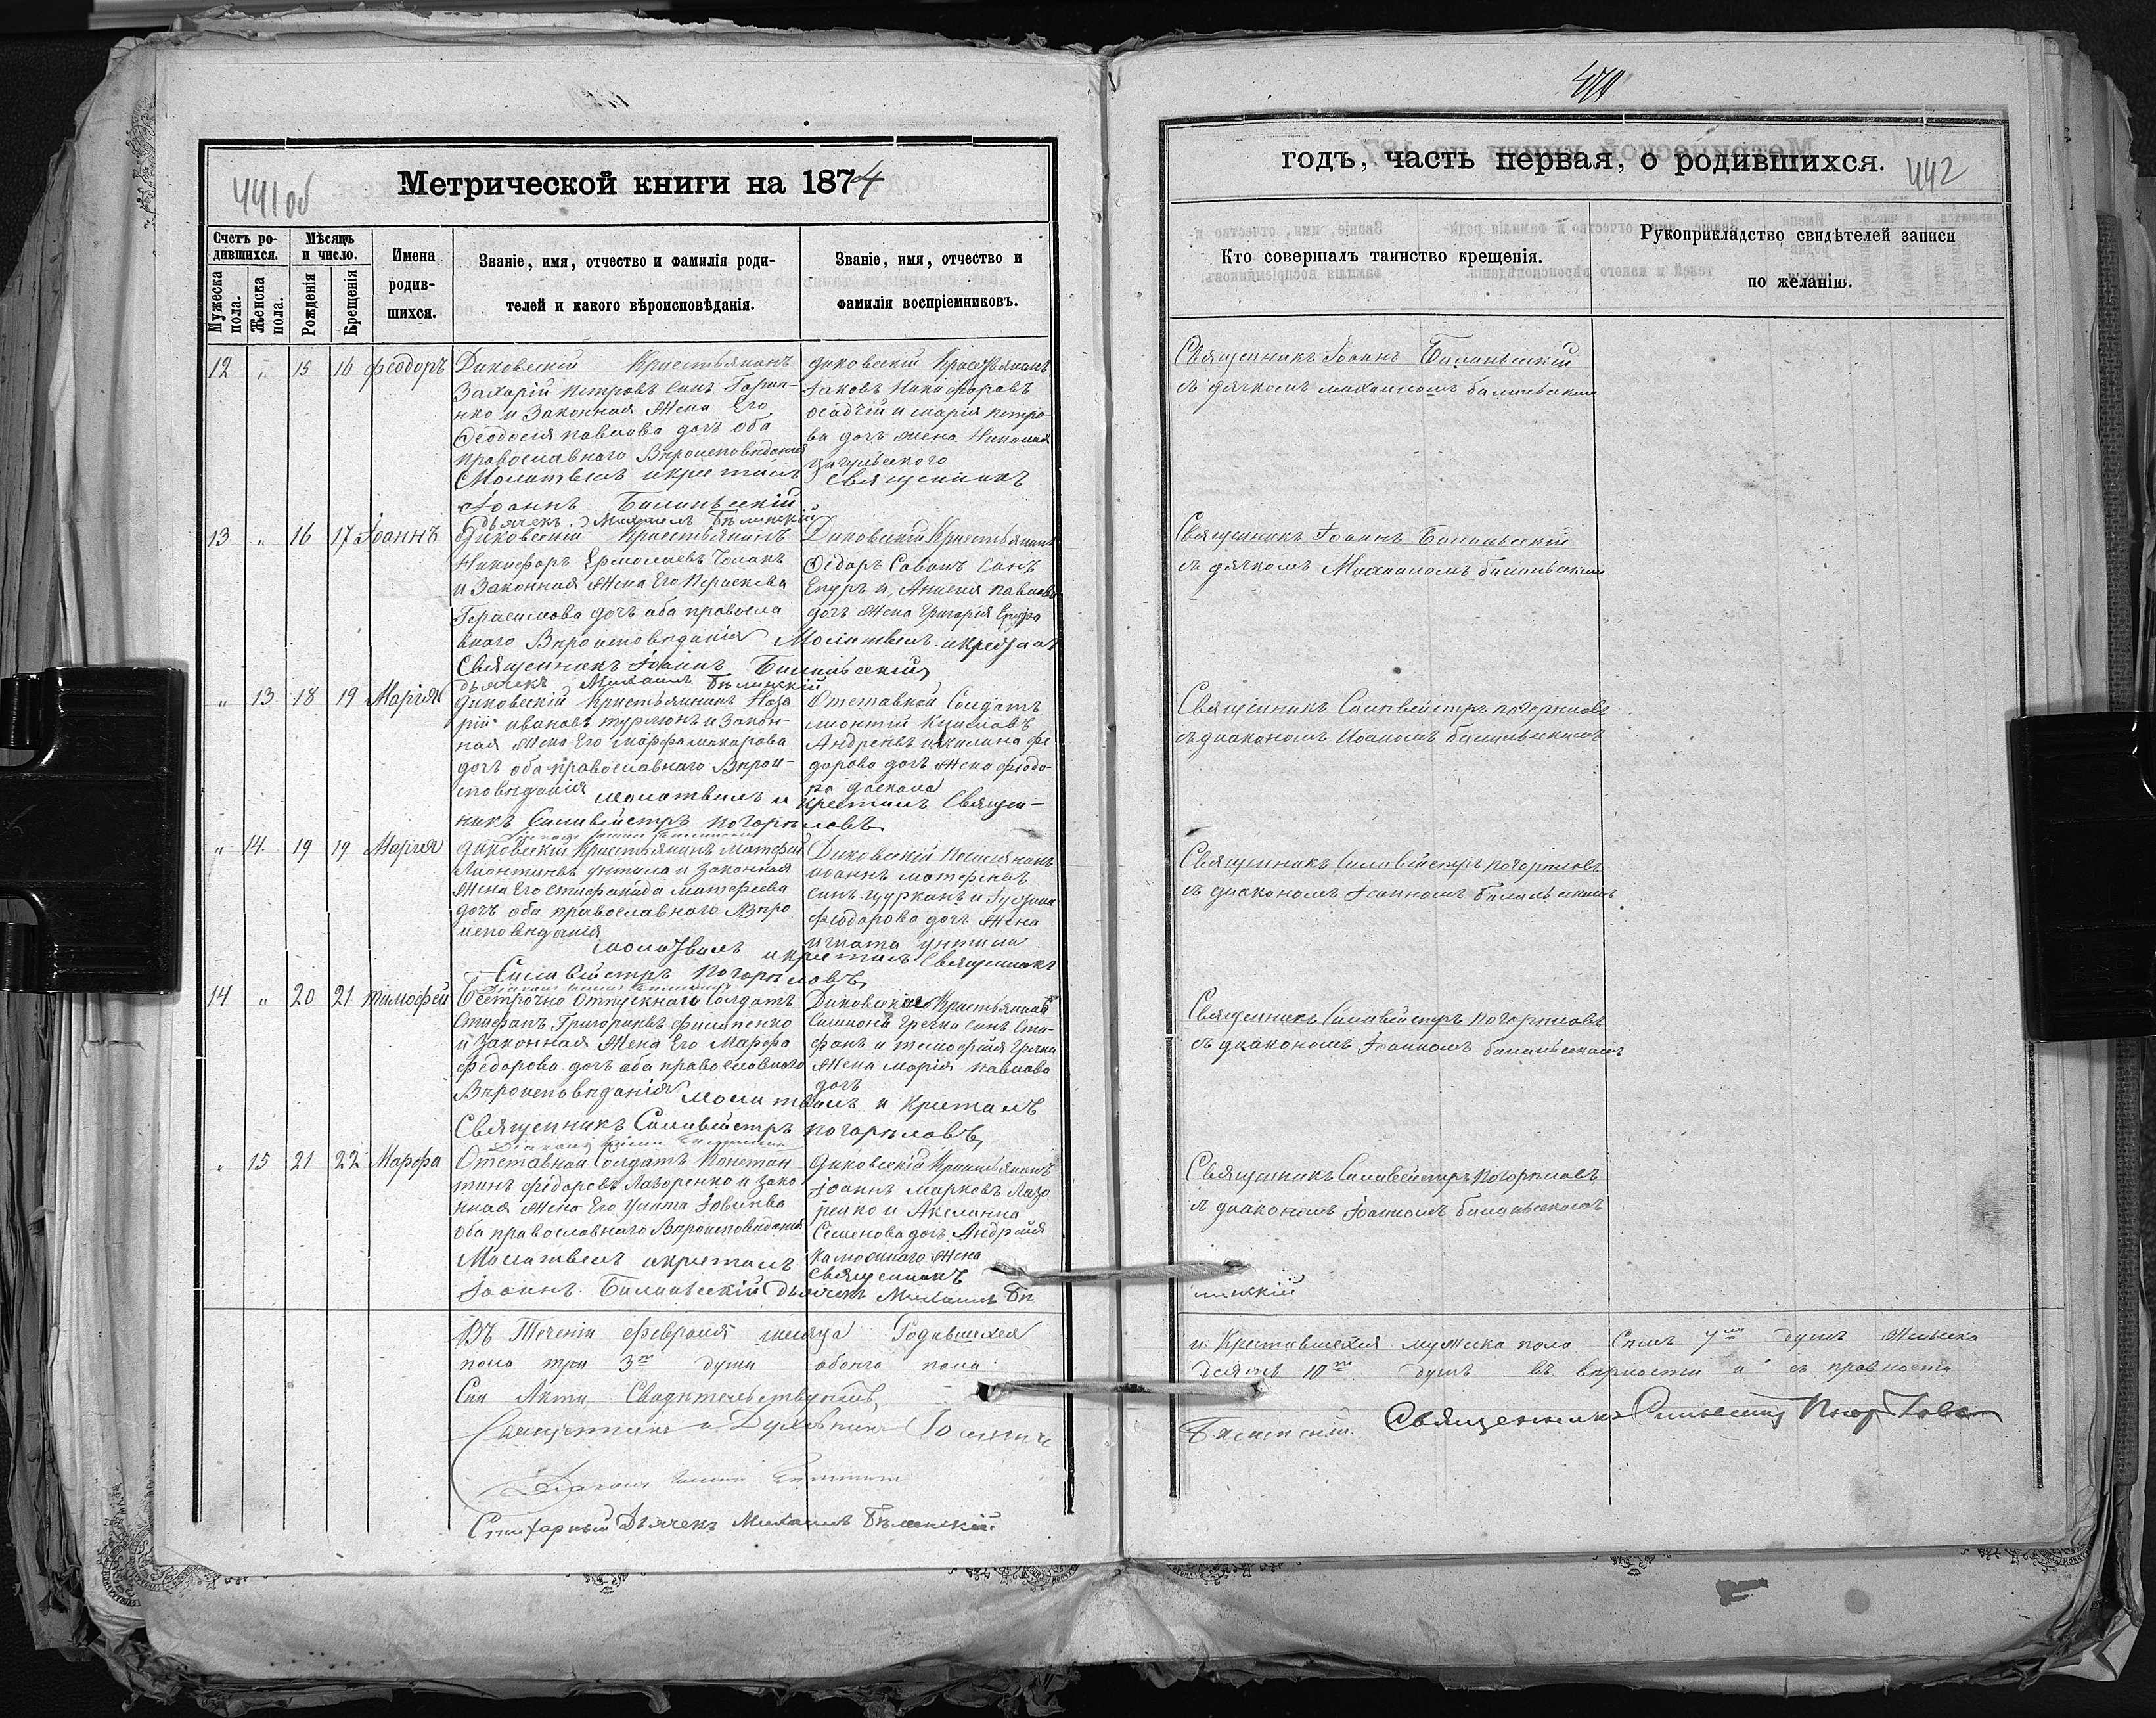 441 об
Метрической книги на 1874
Счетъ ро-
дившихся.
Мѣсяцъ
и число.
Мужеска
пола.
Женска
пола.
Рожденія
Крещенія
Имена
родив-
шихся.
Званіе, имя, отчество и фамилія роди-
телей и какого вѣроисповѣданія.
Званіе, имя, отчество и
фамилія воспріемниковъ.
12 „ 15 16 Феодоръ
Диковскій Крестьянинъ
Захарій Петровъ Синъ
нко и Законная Жена Его
Феодосия павлова дочъ оба
православнаго Вѣроисповѣданія
Молитвелъ и крестилъ
Іоаннъ Билинъский
дьячекъ Михаилъ Бѣлинскій
диковскій Крестьянинъ
Іаковъ Никифоровъ
осадчій и марія петро-
ва дочъ жена Николая
Священникъ
13 „ 16 17 Іоаннъ
Диковский Крестьянинъ
Никифоръ Ермолаевъ
и Законная Жена Его Параскева
Герасимова дочъ оба правосла
внаго Вѣроисповѣданія Молитвелъ и крестилъ
Священникъ Іоаннъ Билинъский
дьячекъ Михаилъ Бѣлинскій
Диковский Крестьянинъ
Федоръ Савинъ Синъ
павлова
дочъ Жена Григорія
„ 13 18 19 Мария
диковский Крестьянинъ Наза
рій ивановъ и Закон-
ная Жена Его марфа макарова
дочъ оба православнаго Вѣрои-
сповѣданія молитвилъ и крестилъ Священ-
никъ Силивейстръ Погорѣловъ
Отставной Солдатъ
Андреевъ и килина фе
дорова дочъ Жена феодо-
ра
„ 14. 19 19 Мария
диковский Крестьянинъ матфей
Леонтиевъ унтила и Законная
Жена Его Стефанида матфеева
дочъ оба православнаго Вѣро
исповѣданія
молитвилъ и крестилъ Священникъ
Силивейстръ Погорѣловъ
Диковский Поселянинъ
иоаннъ матфеевъ
синъ цурканъ и
феодорова дочъ Жена
игната унтила
14 „ 20 21 тимофей
Безсрочно Отпускнаго Солдатъ
Стефанъ Григориевъ филипенко
и Законная Жена Его Марфа
федорова дочъ оба православнаго
Вѣроисповѣданія молитвилъ и Крестилъ
Священникъ Силивейстръ погорѣловъ
Симионъ гречка синъ Сте-
фанъ и тимофея гречки
Жена марія павлова
дочъ
„ 15 21 22 Марфа
Отставной Солдатъ Констан
тинъ федоровъ Лазоренко и зако
нная Жена Его
оба православнаго Вѣроисповѣданія
Молитвелъ и крестилъ
Іоаннъ Билинъский дьячекъ Михаилъ Бѣ
диковский Крестьянинъ
Іоаннъ Марковъ Лазо
ренко и Акелина
Семенова дочъ Андрея
Жена
Священникъ
Въ Течении февраля месяца Родившихся
пола три 3 души обоего пола
Сии Акти Свидетельствуемъ
Священникъ и Духовникъ Іоаннъ
Диаконъ
Дьячекъ Михаилъ Бѣлинскій
годъ, часть первая, о родившихся.
442
Кто совершалъ таинство крещенія.
Рукоприкладство свидѣтелей записи
по желанію.
Священникъ Іоаннъ Билинъский
съ дячкомъ михаиломъ билинъскимъ
Священникъ Іоаннъ Билинъский
съ дячкомъ Михаиломъ билинъскимъ
Священникъ Силивейстръ погорѣловъ
съ диакономъ Иоаномъ билинъскимъ
Священникъ Силивейстръ погорѣловъ
съ диакономъ Іоанномъ билинъскимъ
Священникъ Силивейстръ Погорѣловъ
съ диакономъ Іоанномъ билинъскимъ
Священникъ Силивейстръ Погорѣловъ
съ диакономъ Іоанномъ билинъскимъ
линскій
и Крестившихся мужеска пола Семъ 7 душъ Женска
десять 10 душъ въ верности и съ правности
Бѣлинский. Священникъ Сильвестръ Погорѣловъ